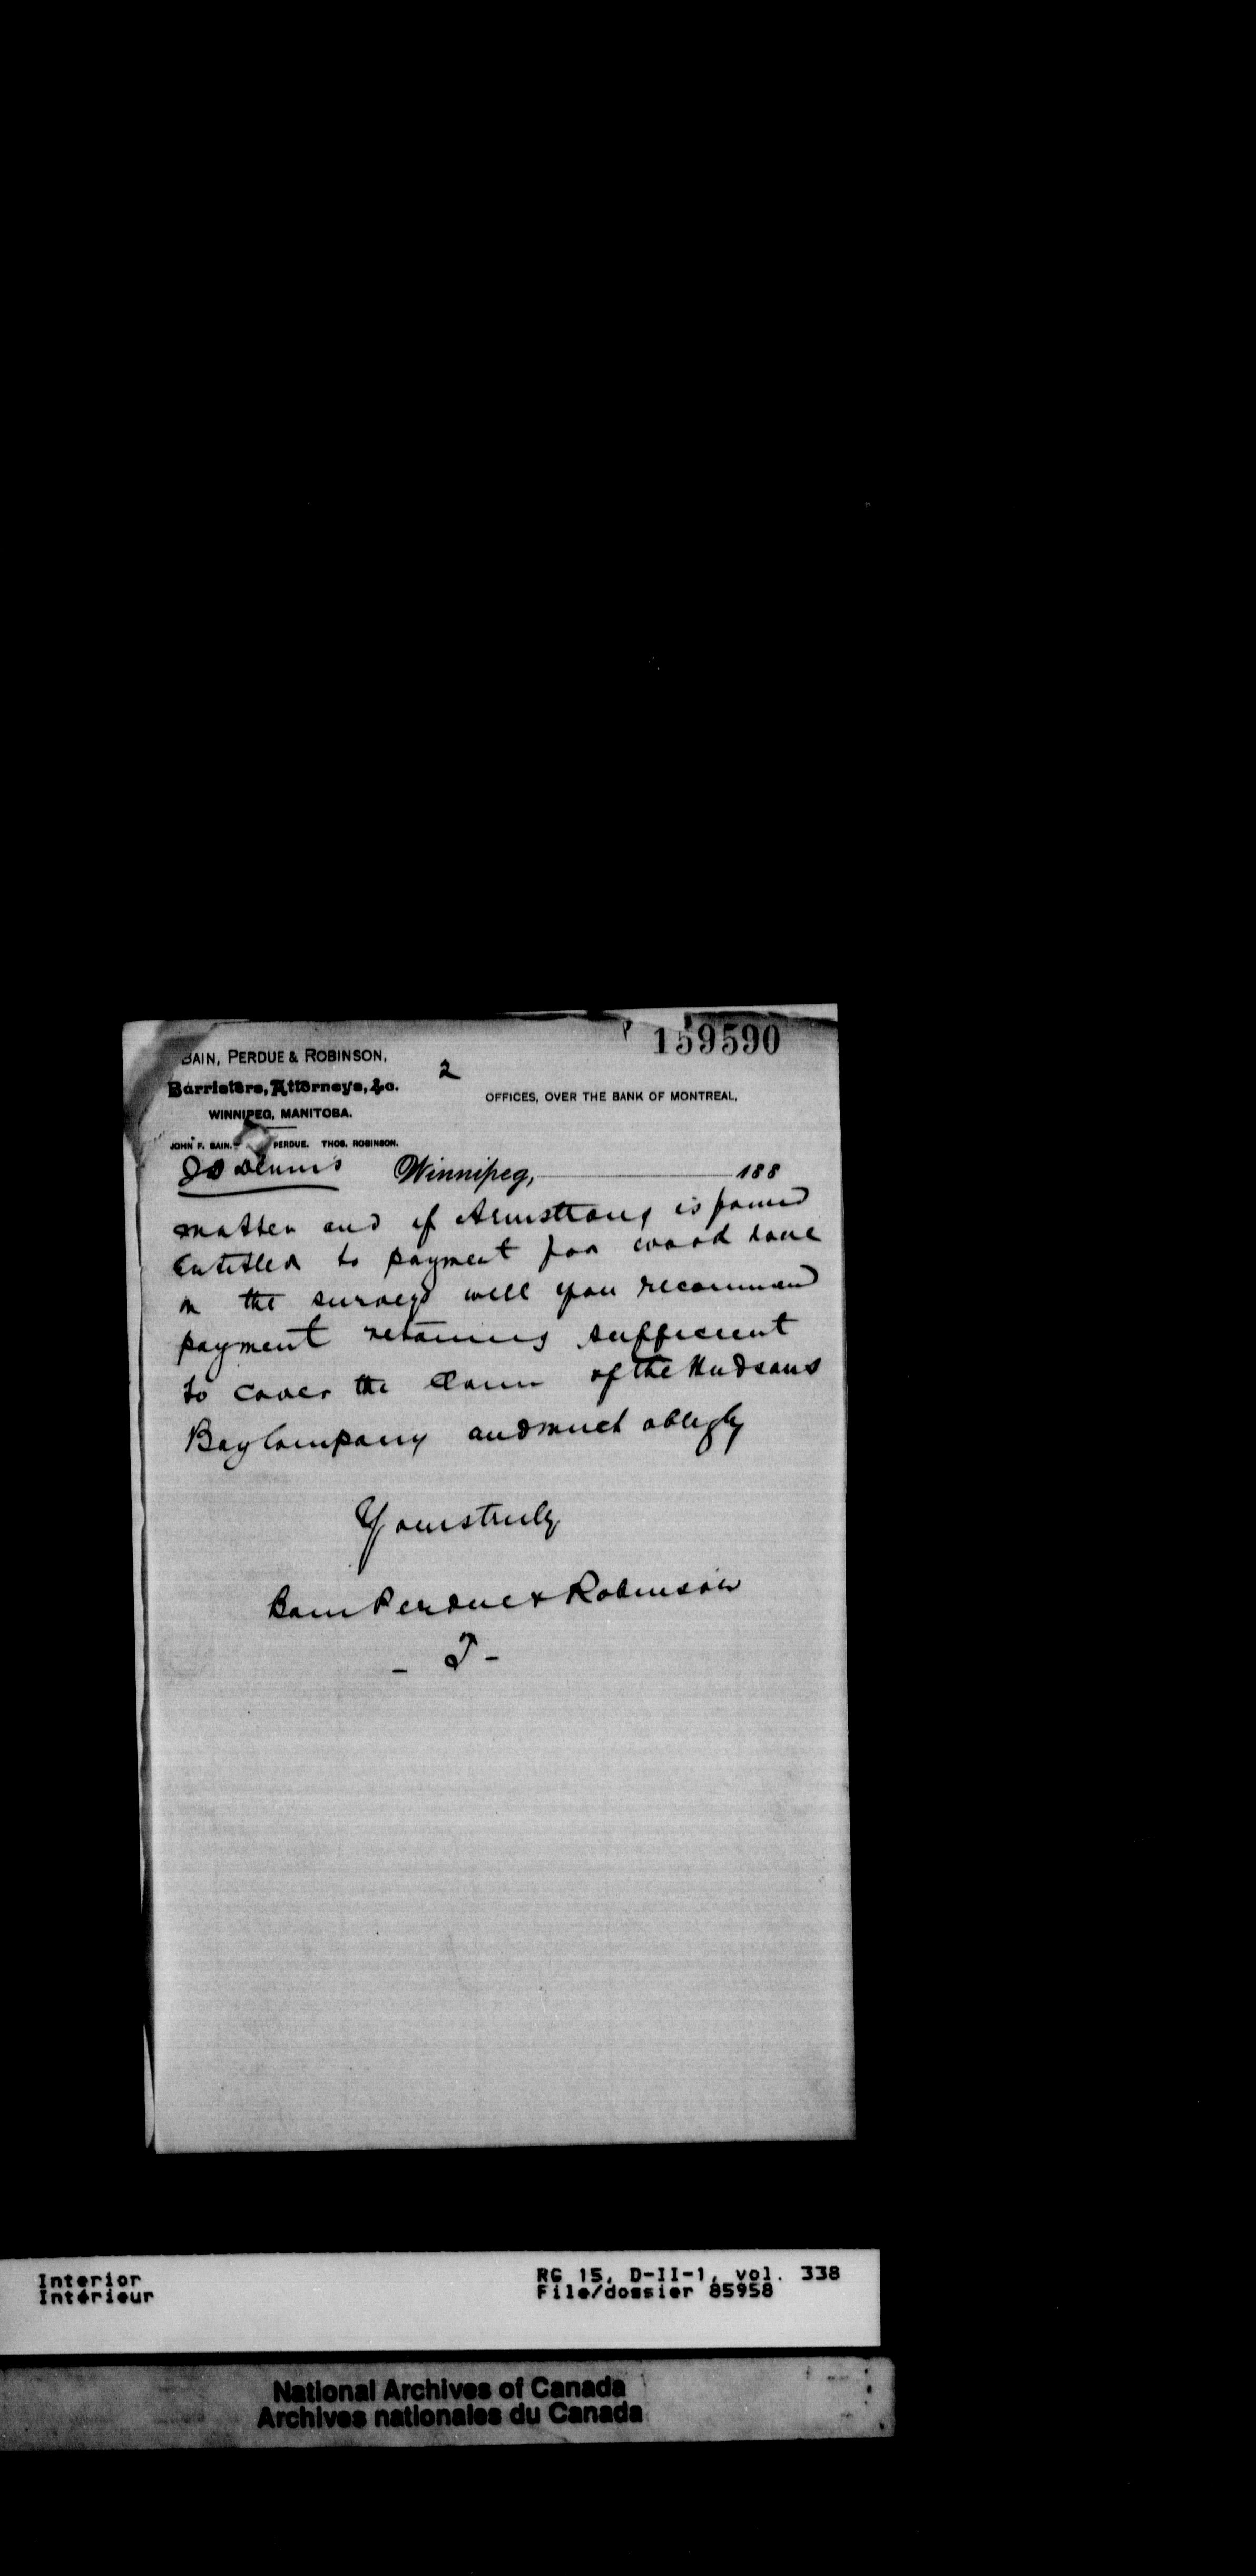 159590
BAIN, PERDUE & ROBINSON,
Barristers, Attorneys, &c.
WINNIPEG, MANITOBA.
2
OFFICES, OVER THE BANK OF MONTREAL,
JOHN F. BAIN. PERDUE. THOS. ROBINSON.
J S Dennis
Winnipeg, 188
matter and if Armstrong is found
Entitled to payment for work done
on the surveys will you recommend
payment retaining sufficient
to cover the claim of the Hudsons
Bay Company and much oblige
Yours truly
Bain Perdue & Robinson
Interior
Intérieur
RG 15, D-II-1, vol. 338
File/dossier 85958
National Archives of Canada
Archives nationales du Canada